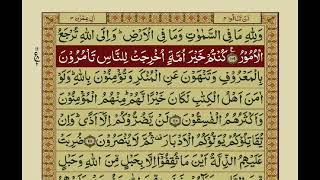 وَلِلّٰهِ مَا فِی السَّمٰوٰتِ وَمَا فِی الْاَرْضِ ؕ وَاِلَی اللّٰهِ تُرْجَعُ
الْاُمُوْرُ ﴿۱۰۹﴾ كُنْتُمْ خَیْرَ اُمَّةٍ اُخْرِجَتْ لِلنَّاسِ تَاْمُرُوْنَ
بِالْمَعْرُوْفِ وَتَنْهَوْنَ عَنِ الْمُنْكَرِ وَتُؤْمِنُوْنَ بِاللّٰهِ ؕ وَلَوْ
اٰمَنَ اَهْلُ الْكِتٰبِ لَكَانَ خَیْرًا لَّهُمْ ؕ مِنْهُمُ الْمُؤْمِنُوْنَ
وَاَكْثَرُهُمُ الْفٰسِقُوْنَ ﴿۱۱۰﴾ لَنْ یَّضُرُّوْكُمْ اِلَّاۤ اَذًی ؕ وَاِنْ
یُّقَاتِلُوْكُمْ یُوَلُّوْكُمُ الْاَدْبَارَ ۫ ثُمَّ لَا یُنْصَرُوْنَ ﴿۱۱۱﴾ ضُرِبَتْ
عَلَیْهِمُ الذِّلَّةُ اَیْنَ مَا ثُقِفُوْۤا اِلَّا بِحَبْلٍ مِّنَ اللّٰهِ وَحَبْلٍ